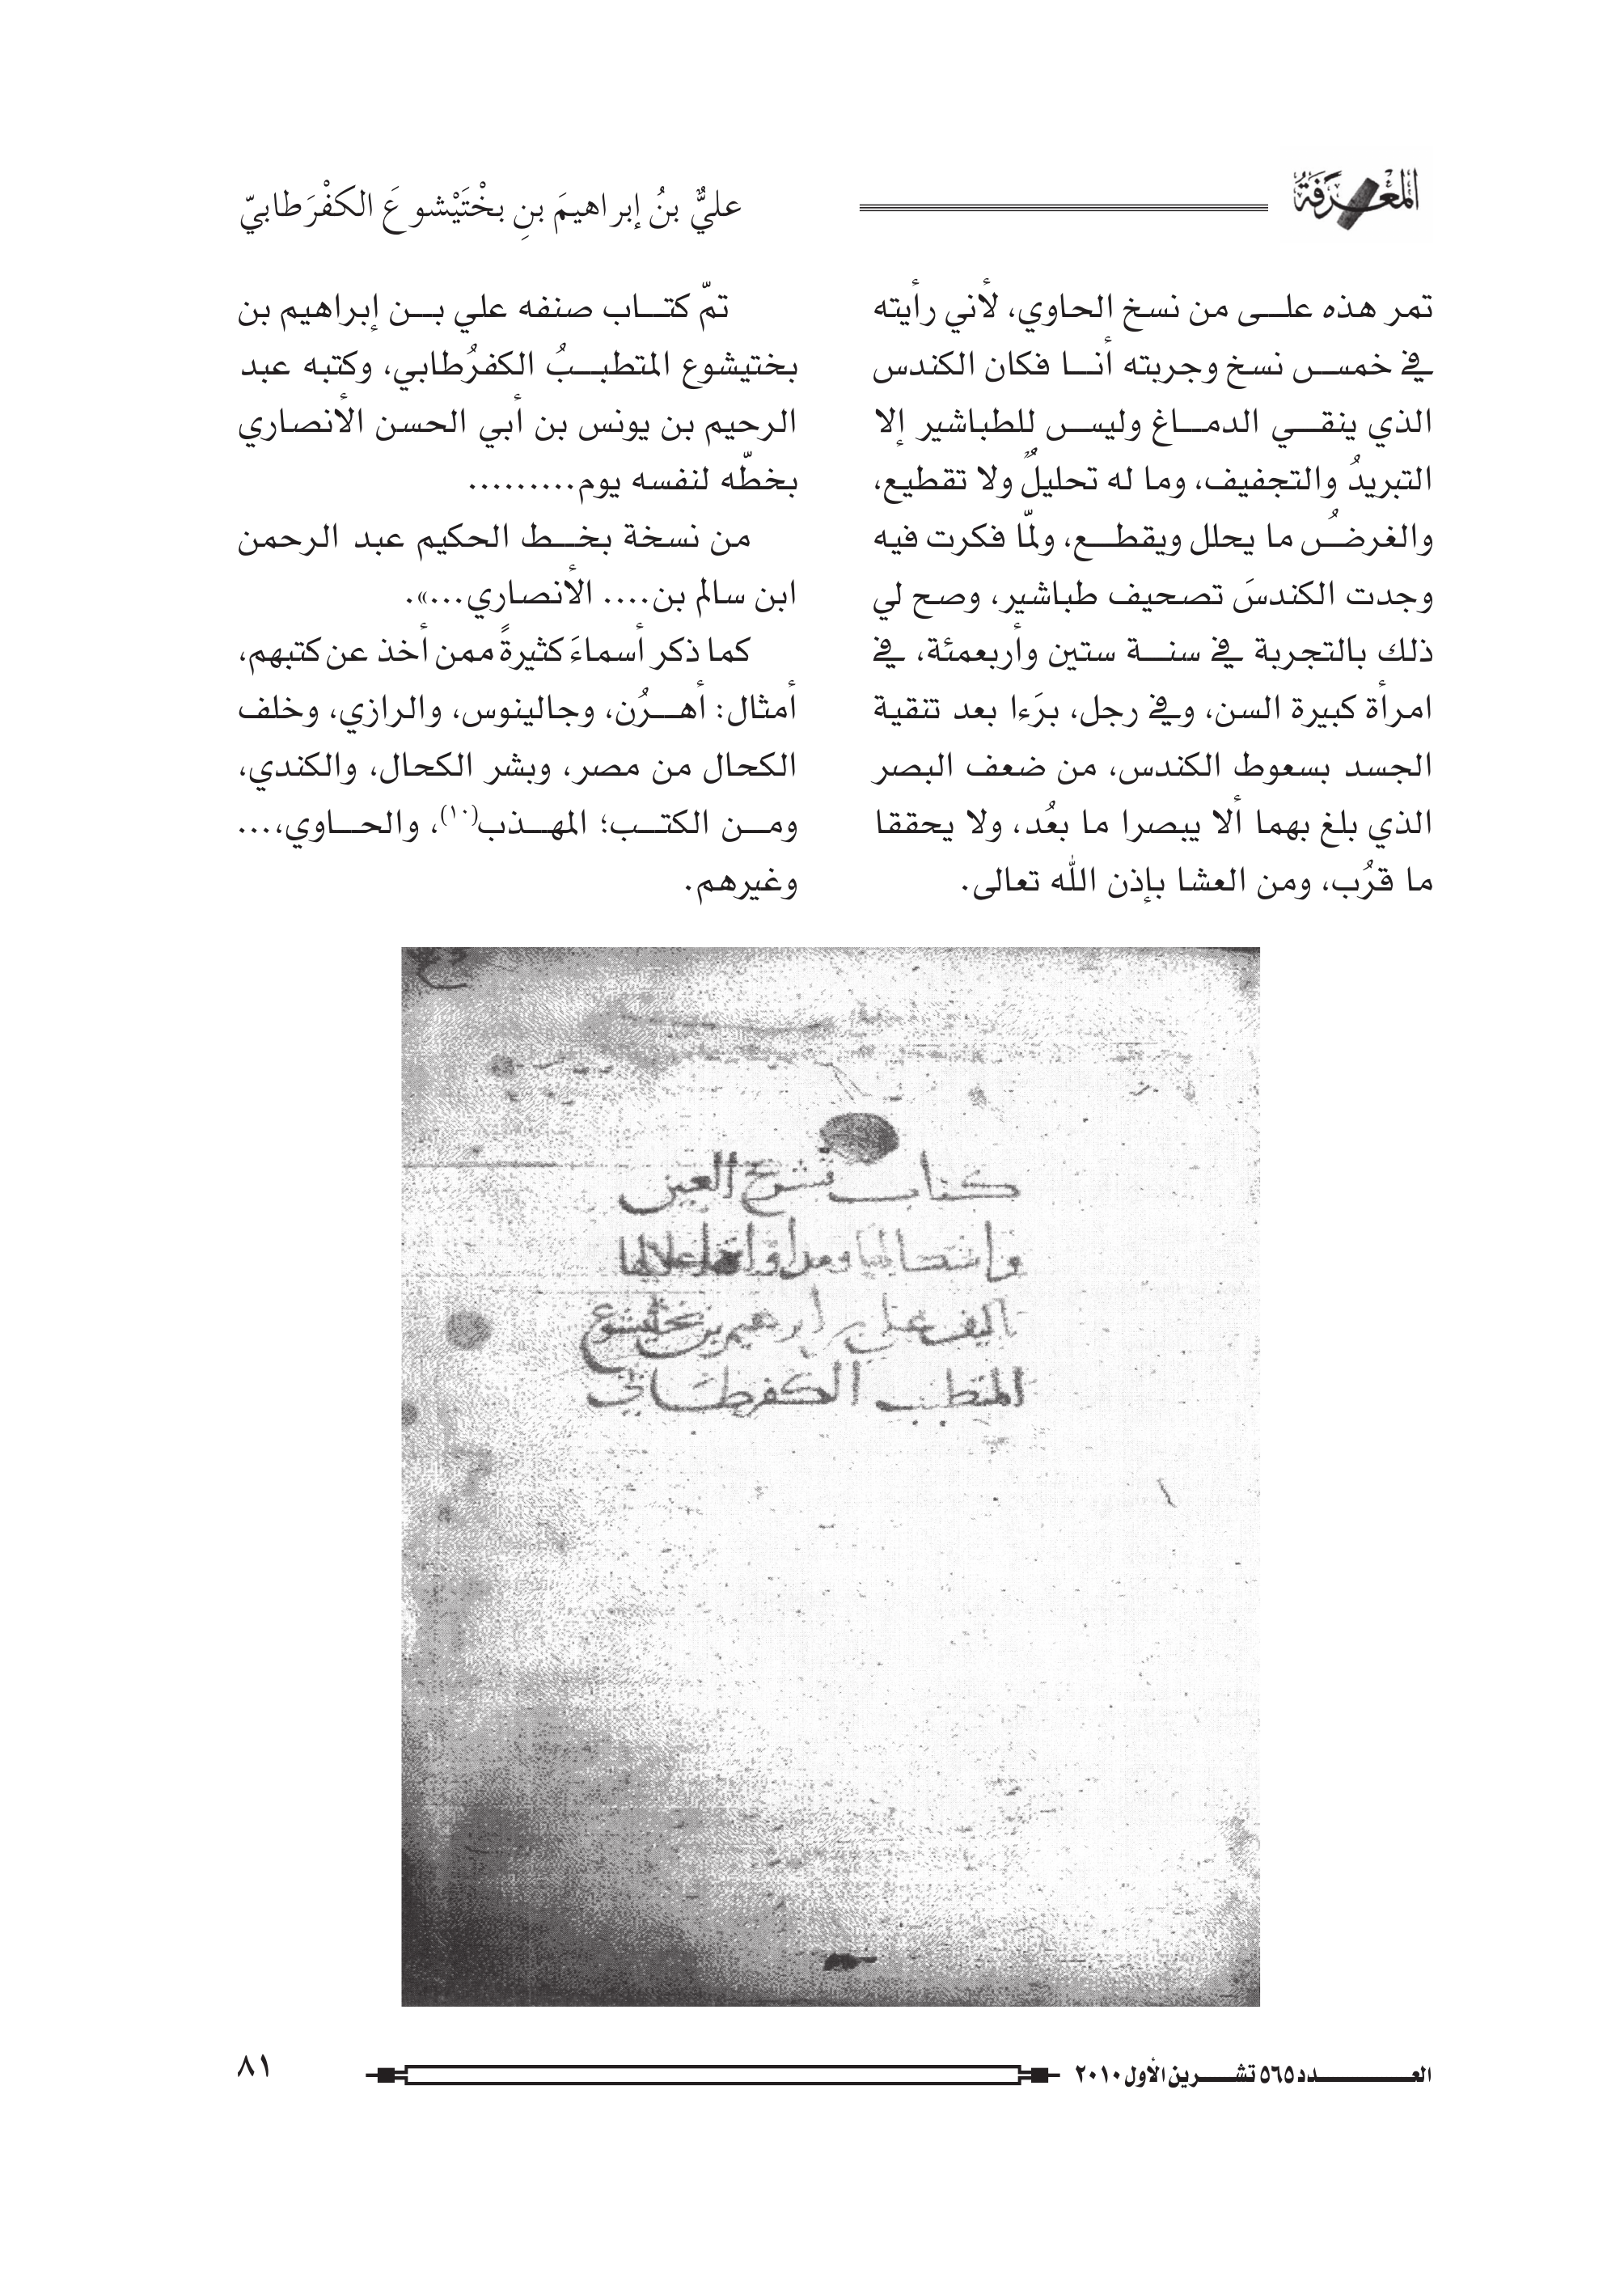 المعرفة
عليٌّ بنُ إبراهيمَ بنِ بخْتَيْشوعَ الكفْرَطابيّ
تمر هذه على من نسخ الحاوي، لأني رأيته
في خمس نسخ وجربته أنا فكان الكندس
الذي ينقي الدماغ وليس للطباشير إلا
التبريدُ والتجفيف، وما له تحليلٌ ولا تقطيع،
والغرضُ ما يحلل ويقطع، ولمّا فكرت فيه
وجدت الكندسَ تصحيف طباشير، وصح لي
ذلك بالتجربة في سنة ستين وأربعمئة، في
امرأة كبيرة السن، وفي رجل، برَءا بعد تنقية
الجسد بسعوط الكندس، من ضعف البصر
الذي بلغ بهما ألا يبصرا ما بعُد، ولا يحققا
ما قرُب، ومن العشا بإذن الله تعالى.
تمّ كتاب صنفه علي بن إبراهيم بن
بختيشوع المتطببُ الكفرُطابي، وكتبه عبد
الرحيم بن يونس بن أبي الحسن الأنصاري
بخطّه لنفسه يوم.........
من نسخة بخط الحكيم عبد الرحمن
ابن سالم بن.... الأنصاري...».
كما ذكر أسماءَ كثيرةً ممن أخذ عن كتبهم،
أمثال: أهرُن، وجالينوس، والرازي، وخلف
الكحال من مصر، وبشر الكحال، والكندي،
ومن الكتب؛ المهذب(١٠)، والحاوي،...
وغيرهم.
كتاب تشريح العين
واشكالها ومداواة اعلالها
تاليف علي بن ابرهيم بن بختيشوع
المتطبب الكفرطابي
العدد ٥٦٥ تشرين الأول ٢٠١٠
٨١